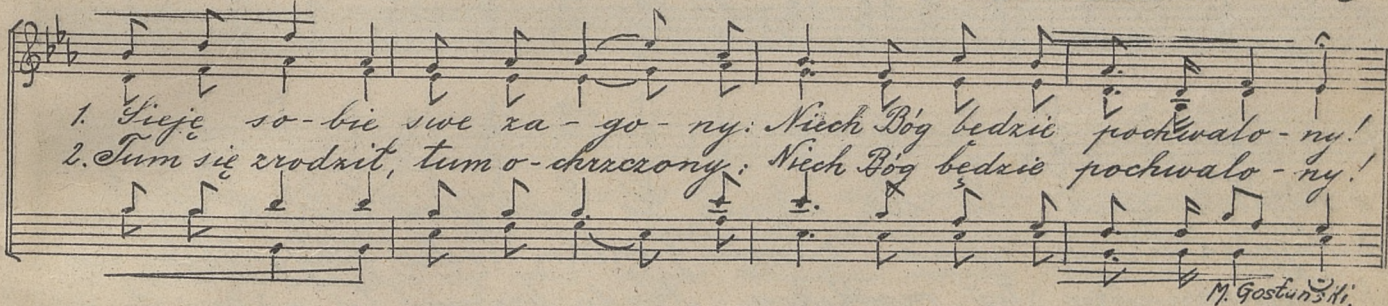 1. Sieję so-bie swe za-go-ny: Niech Bóg będzie pochwalo-ny!
2. Tum się zrodził, tum o-chrzczony: Niech Bóg będzie pochwalo-ny!
M. Gostuński.